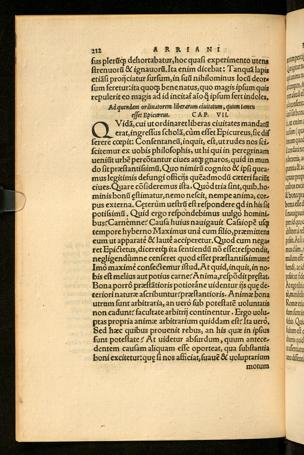 212 ARRIANI
sus plerũq; dehortabatur, hoc quasi experimento utens
strenuorũ & ignauorũ. Ita enim dicebat: Tanquã lapis
etiãsi proijciatur sursum, in suũ nihilominus locũ deor-
sum feretur: ita quoq; bene natus, quo magis ipsum quis
repulerit eo magis ad id incitat͂ a io q̃ ipsum fert indoles.
Ad quendam ordinatorem liberarum ciuitatum, quium tamen
esset Epicureus. CAP. VII.
QVidã, cui ut ordinaret liberas ciuitates mandatũ
erat, ingressus scholã, cũm esset Epicureus, sic dis
serere cœpit: Consentaneũ, inquit, est, ut rudes nos sci-
scitemur ex uobis philosophis, ut hi qui in peregrinam
ueniũt urbẽ percõtantur ciues atq; gnaros, quid in mun
do sit præstantissimũ, Quo nimirũ cognito & ipsi quea-
mus legitimis defungi officijs quẽadmodũ cæteri faciũt
ciues. Quare cõsideremus ista. Quòd tria sint, quib. ho-
minis bonũ æstimatur, nemo nescit, nempe anima, cor-
pus externa. Cæterùm uestrũ est respondere q̃d in his sit
potissimũ. Quid ergo respondebimus uulgò homini-
bus? Carnemne? Causa huius nauigauit Cassiopẽ usq;
tempore hyberno Maximus unà cum filio, præmittens
eum ut apparatè & lautè acciperetur. Quod cum negas-
set Epictetus, diceretq; ita sentiendũ nõ esse: respondit,
negligendũmne censeret quod esset præstantissimum?
Imò maximè confitemur istud. At quid, inquit, in no-
bis est melius aut potius carne? Anima, respõdit præstãs.
Bona porrò præstãtioris potiorãne uidentur ijs que de-
teriori naturæ ascribuntur? præstantioris. Animæ bona
utrum sunt arbitraria, an uerò sub potestatẽ uoluntatis
non cadunt? facultate arbitrij continentur. Ergo uolu-
ptas propria animæ arbitrarium quiddam est? Ita uerò,
Sed hæc quibus prouenit rebus, an his quæ in ipsius sunt
potestate? At uidetur absurdum, quum antece-
dentem causam aliquam esse oporteat, qua substantia
boni excitetur: que si nos afficiat, suauẽ & uoluptarium
motum